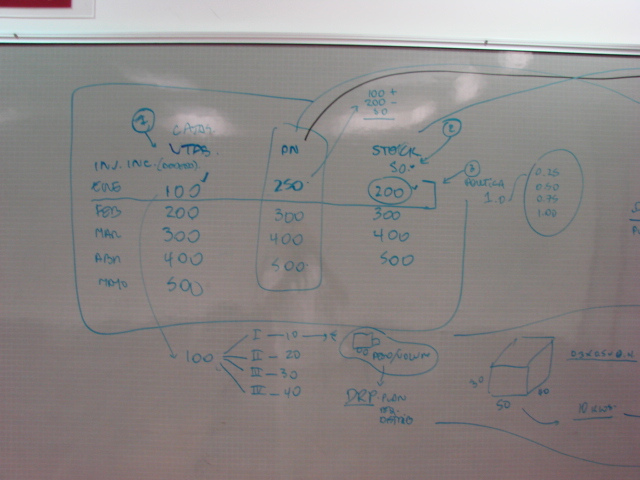 100 +
200 -
50
1
2
VTAS. PN STOCK
INV. INC. 50
3
ENE 100 250 200
POLITICA
1.0
0.25
0.50
0.75
1.00
FEB 200 300 300
MAR 300 400 400
ABR 400 500 500
MAYO 500
100
I - 10
II - 20
III - 30
III - 40
PESO/VOLUM
DRP PLAN
30
50
10 KGS